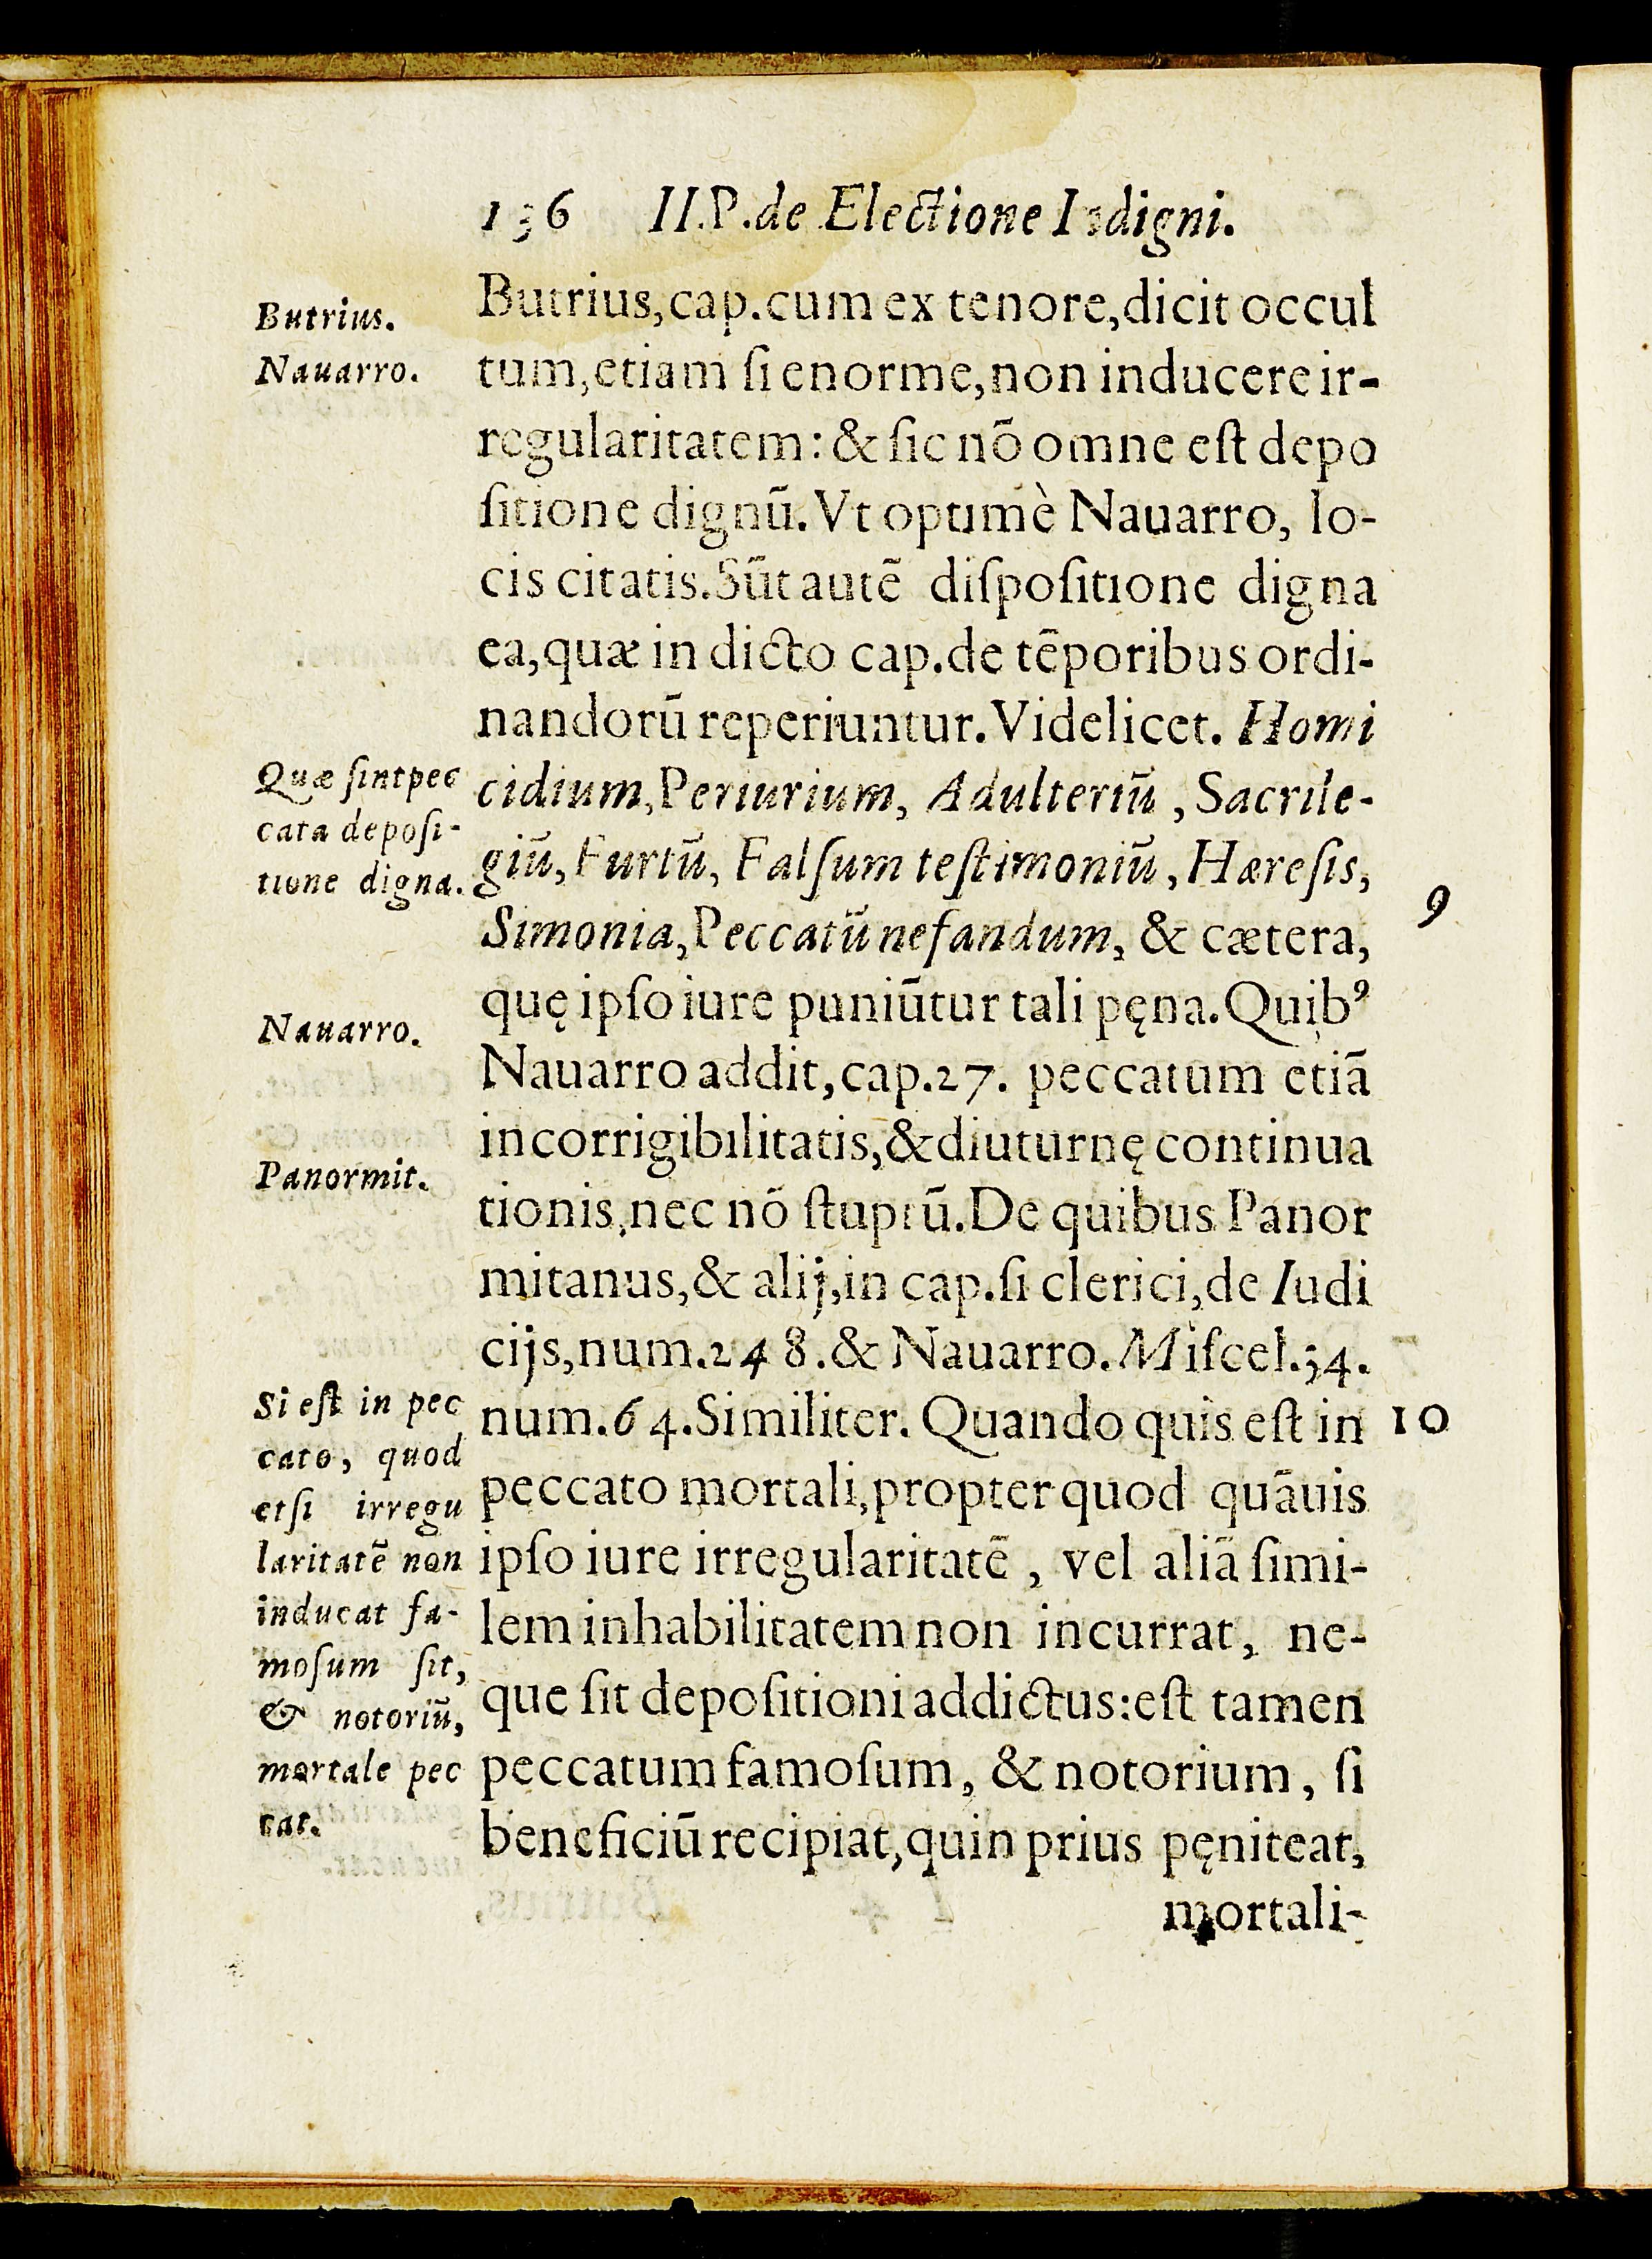 136 II.P.de Electione Indigni.
Butrius.
Nauarro.
Butrius,cap.cum ex tenore,dicit occul
tum,etiam ſi enorme,non inducere ir-
regularitatem: & ſic nō omne eſt depo
ſitione dignū. Vt optimè Nauarro, lo-
cis citatis. Sūt autē diſpoſitione digna
ea,quæ in dicto cap.de tēporibus ordi-
nandorū reperiuntur. Videlicet. Homi
cidium,Periurium, Adulteriū, Sacrile-
giū, Furtū, Falſum teſtimoniū, Hæreſis,
Simonia,Peccatū nefandum, & cætera,
quę ipſo iure puniūtur tali pęna. Quibꝰ
Nauarro addit,cap.27. peccatum etiā
incorrigibilitatis,& diuturnę continua
tionis,nec nō ſtuprū. De quibus Panor
mitanus,& alij,in cap.ſi clerici,de Iudi
cijs,num.248.& Nauarro. Miſcel.34.
num.64.Similiter. Quando quis eſt in
peccato mortali,propter quod quāuis
ipſo iure irregularitatē, vel aliā ſimi-
lem inhabilitatem non incurrat, ne-
que ſit depoſitioni addictus:eſt tamen
peccatum famoſum, & notorium, ſi
beneficiū recipiat,quin prius pęniteat,
mortali-
Quæ ſint pec
cata depoſi-
tione digna.
9
Nauarro.
Panormit.
10
Si eſt in pec
cato, quod
etſi irregu
laritatē non
inducat fa-
moſum ſit,
& notoriū,
mortale pec
cat.